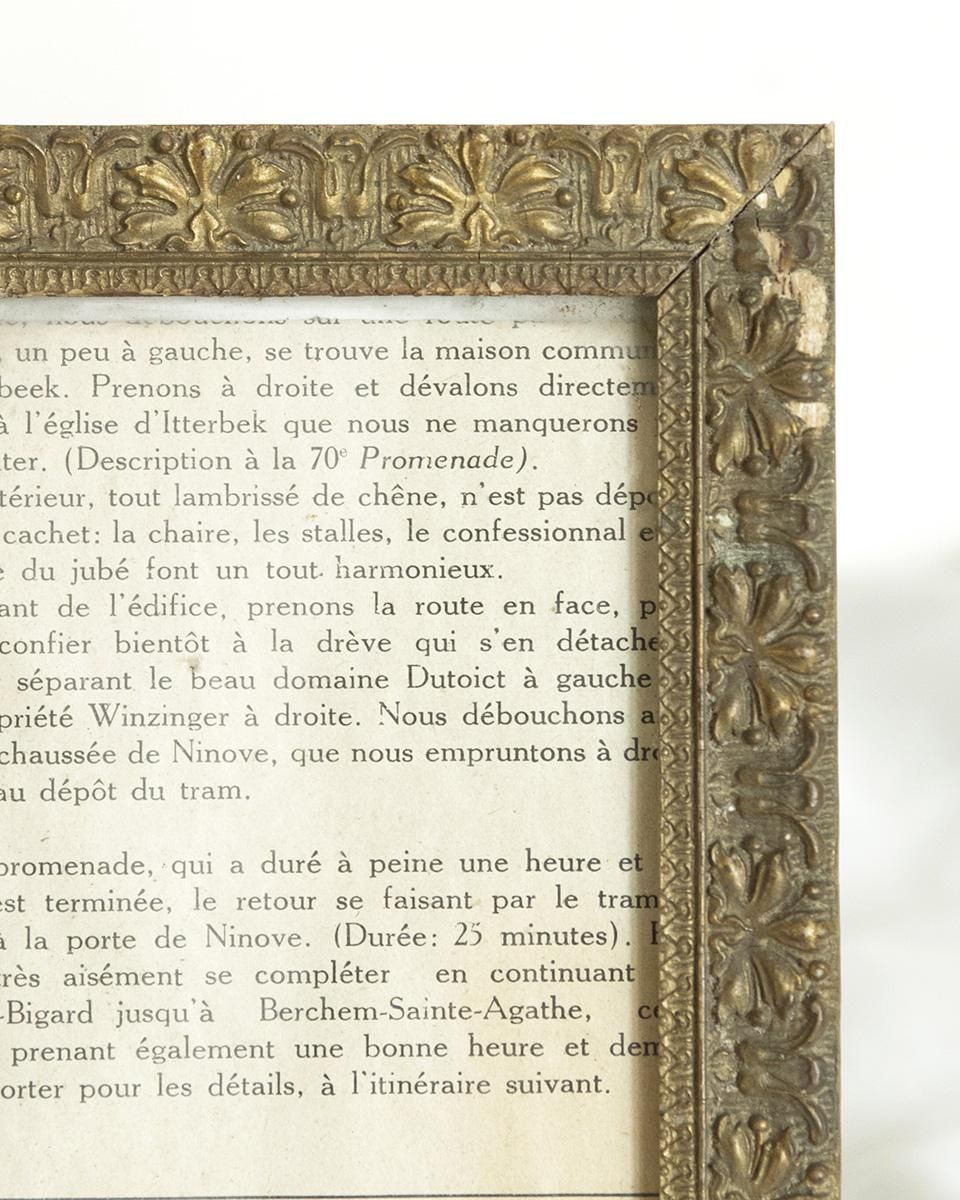 nous débouchons sur une route
, un peu à gauche, se trouve la maison commun
beek. Prenons à droite et dévalons directem
à l'église d'Itterbek que nous ne manquerons
ter. (Description à la 70e Promenade).
térieur, tout lambrissé de chêne, n'est pas dépo
cachet: la chaire, les stalles, le confessionnal e
du jubé font un tout harmonieux.
ant de l'édifice, prenons la route en face, p
confier bientôt à la drève qui s'en détache
séparant le beau domaine Dutoict à gauche
priété Winzinger à droite. Nous débouchons a
chaussée de Ninove, que nous empruntons à dro
au dépôt du tram.
promenade, qui a duré à peine une heure et
est terminée, le retour se faisant par le tram
à la porte de Ninove. (Durée: 25 minutes).
très aisément se compléter en continuant
-Bigard jusqu'à Berchem-Sainte-Agathe, co
prenant également une bonne heure et dem
orter pour les détails, à l'itinéraire suivant.